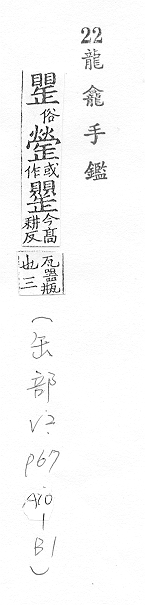 22 龍龕手鑑
俗罃或作罌今高耕反瓦器瓶也三
(缶部 V2. P67 A10 | B1)